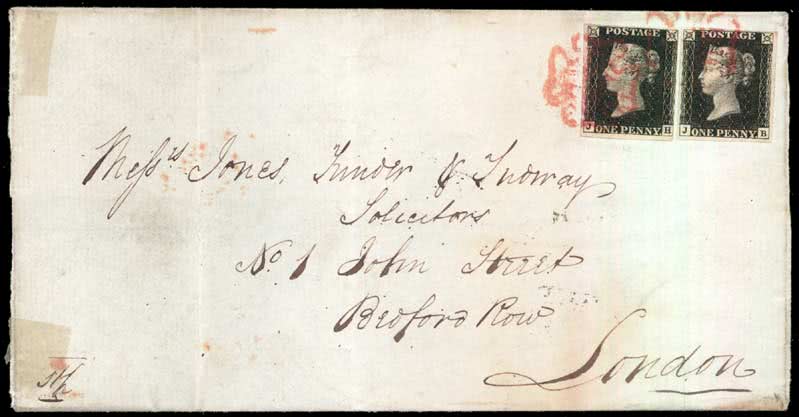 POSTAGE POSTAGE
J ONE PENNY H J ONE PENNY B
Messrs Jones,
Solicitors
No. 1 John Street
Bedford Row
London